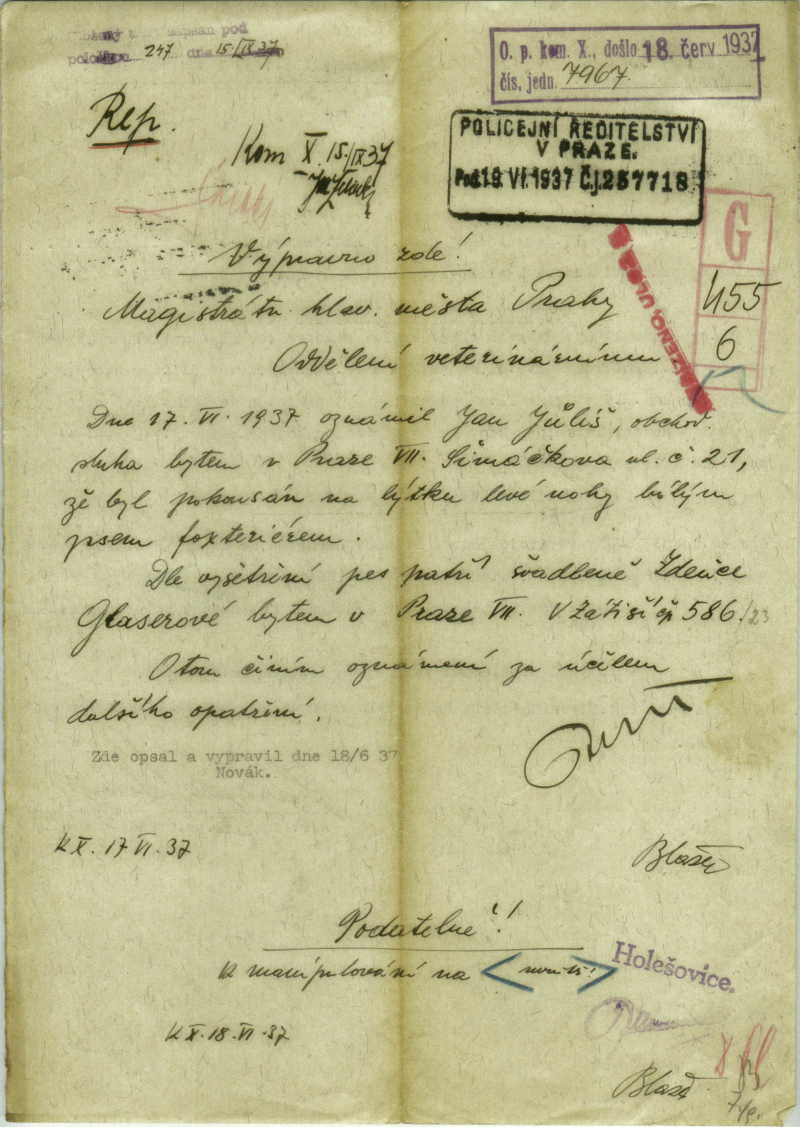 pod
položkou 247 dne 15/IX 37
O. p. kom. X., došlo 18. červ 1937
čís. jedn. 7967
Rep.
Kom X 15./IX 37
POLICEJNÍ ŘEDITELSTVÍ
V PRAZE.
Pod 19. VI. 1937 Č.J. 257718
G
455
6
Výpravno zde!
Magistrátu hlav. města Prahy
Oddělení veterinárnímu
Dne 17. VI. 1937 oznámil Jan Jůliš, obchod.
sluha bytem v Praze VII. Šimáčkova ul. č. 21,
že byl pokousán na lýtku levé nohy bílým
psem foxteriérem.
Dle vyšetření pes patří švadleně Zdeňce
Glaserové bytem v Praze VII. V Zátiší čp 586/23
O tom činím oznámení za účelem
dalšího opatření.
Zde opsal a vypravil dne 18/6 37
Novák.
K X. 17 VI. 37
Podatelně!
K manipulování na
Holešovice.
K X. 18. VI. 37